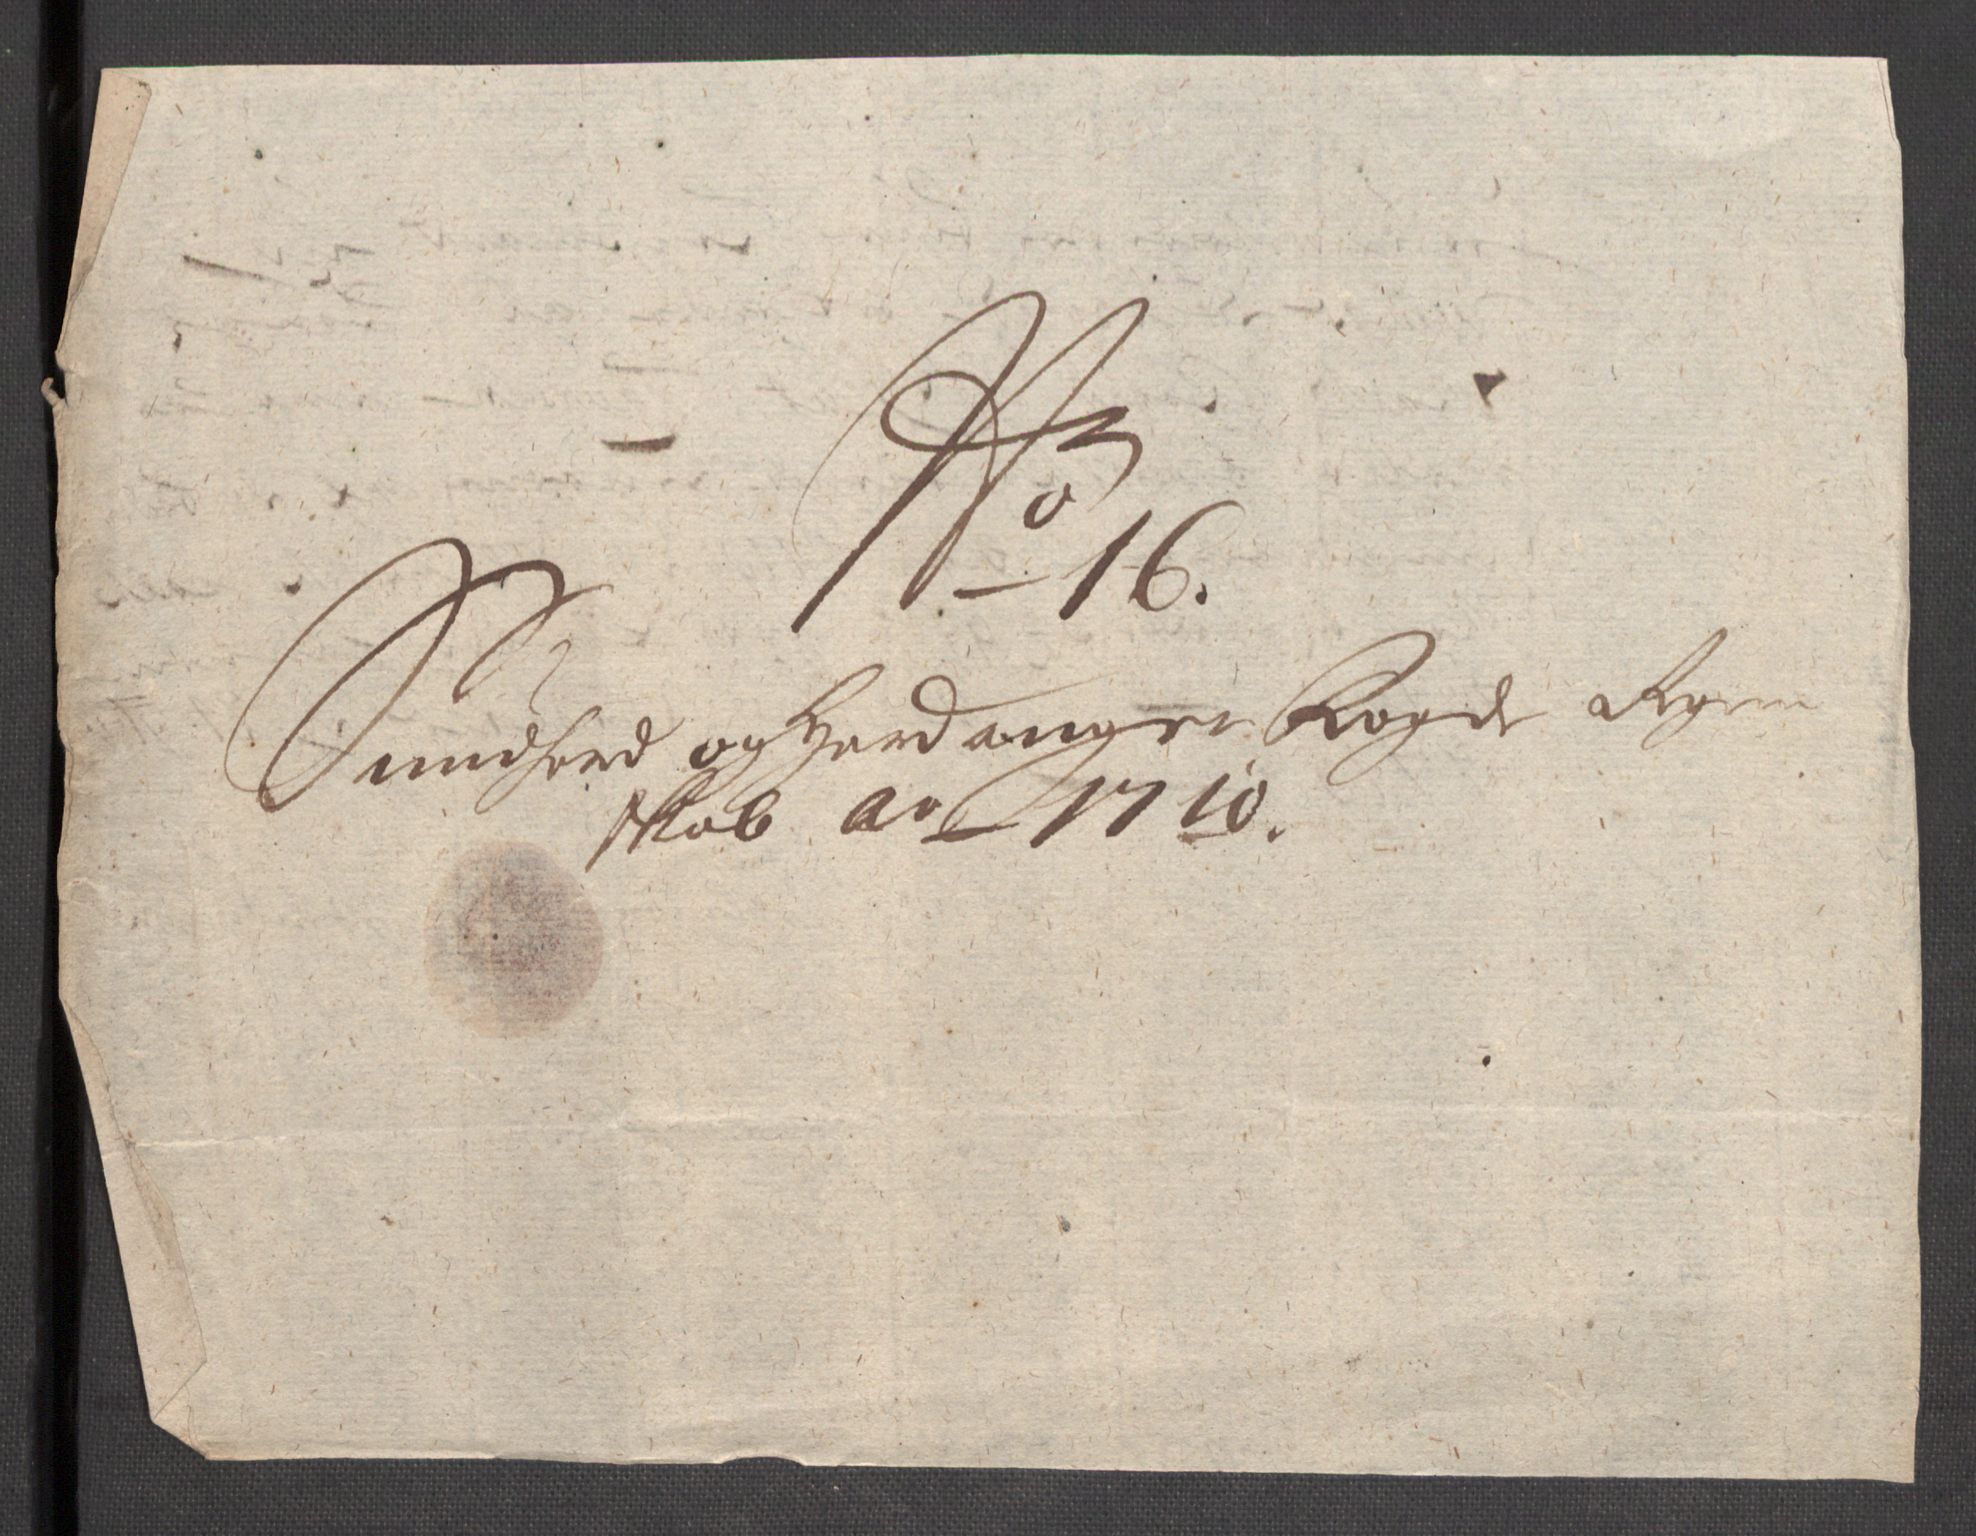 No 16.
Sundhord og Hardanger Fogde Regen
skab ao 1710.